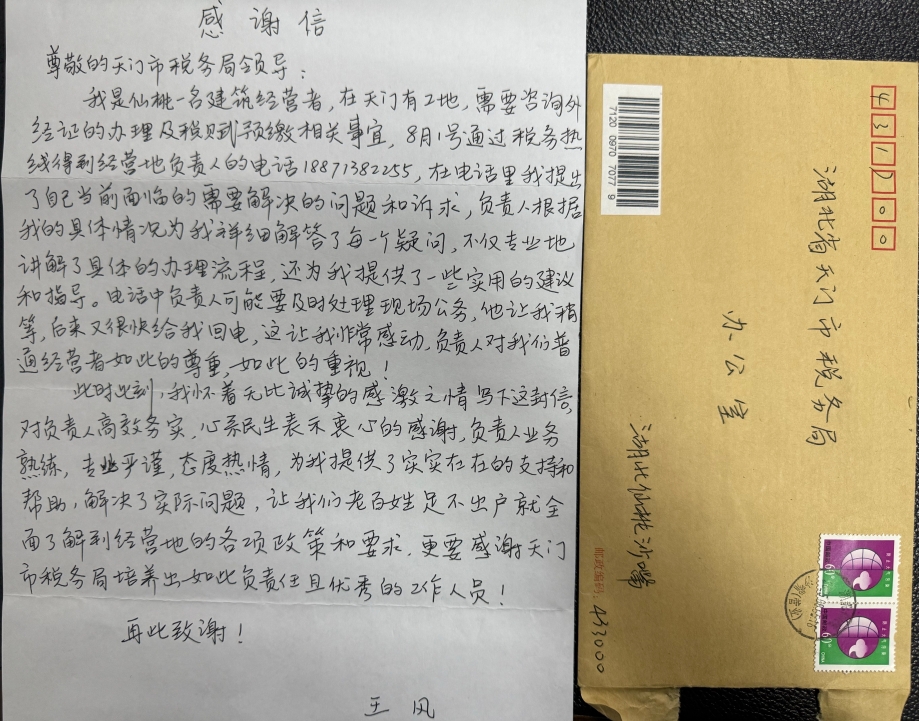 感谢信
尊敬的天门市税务局领导：
我是仙桃一名建筑经营者，在天门有工地，需要咨询外
经证的办理及税赋预缴相关事宜，8月1号通过税务热
线得到经营地负责人的电话18871382255，在电话里我提出
了自己当前面临的需要解决的问题和诉求，负责人根据
我的具体情况为我详细解答了每一个疑问，不仅专业地
讲解了具体的办理流程，还为我提供了一些实用的建议
和指导。电话中负责人可能要及时处理现场公务，他让我稍
等，后来又很快给我回电，这让我非常感动，负责人对我们普
通经营者如此的尊重，如此的重视！
此时此刻，我怀着无比诚挚的感激之情写下这封信，
对负责人高效务实，心系民生表示衷心的感谢，负责人业务
熟练，专业严谨，态度热情，为我提供了实实在在的支持和
帮助，解决了实际问题，让我们老百姓足不出户就全
面了解到经营地的各项政策和要求，更要感谢天门
市税务局培养出如此负责任且优秀的工作人员！
再此致谢！
王风
7120 0970 7077 9
431000
湖北省天门市税务局
办公室
湖北仙桃沙嘴
邮政编码：433000
60
60